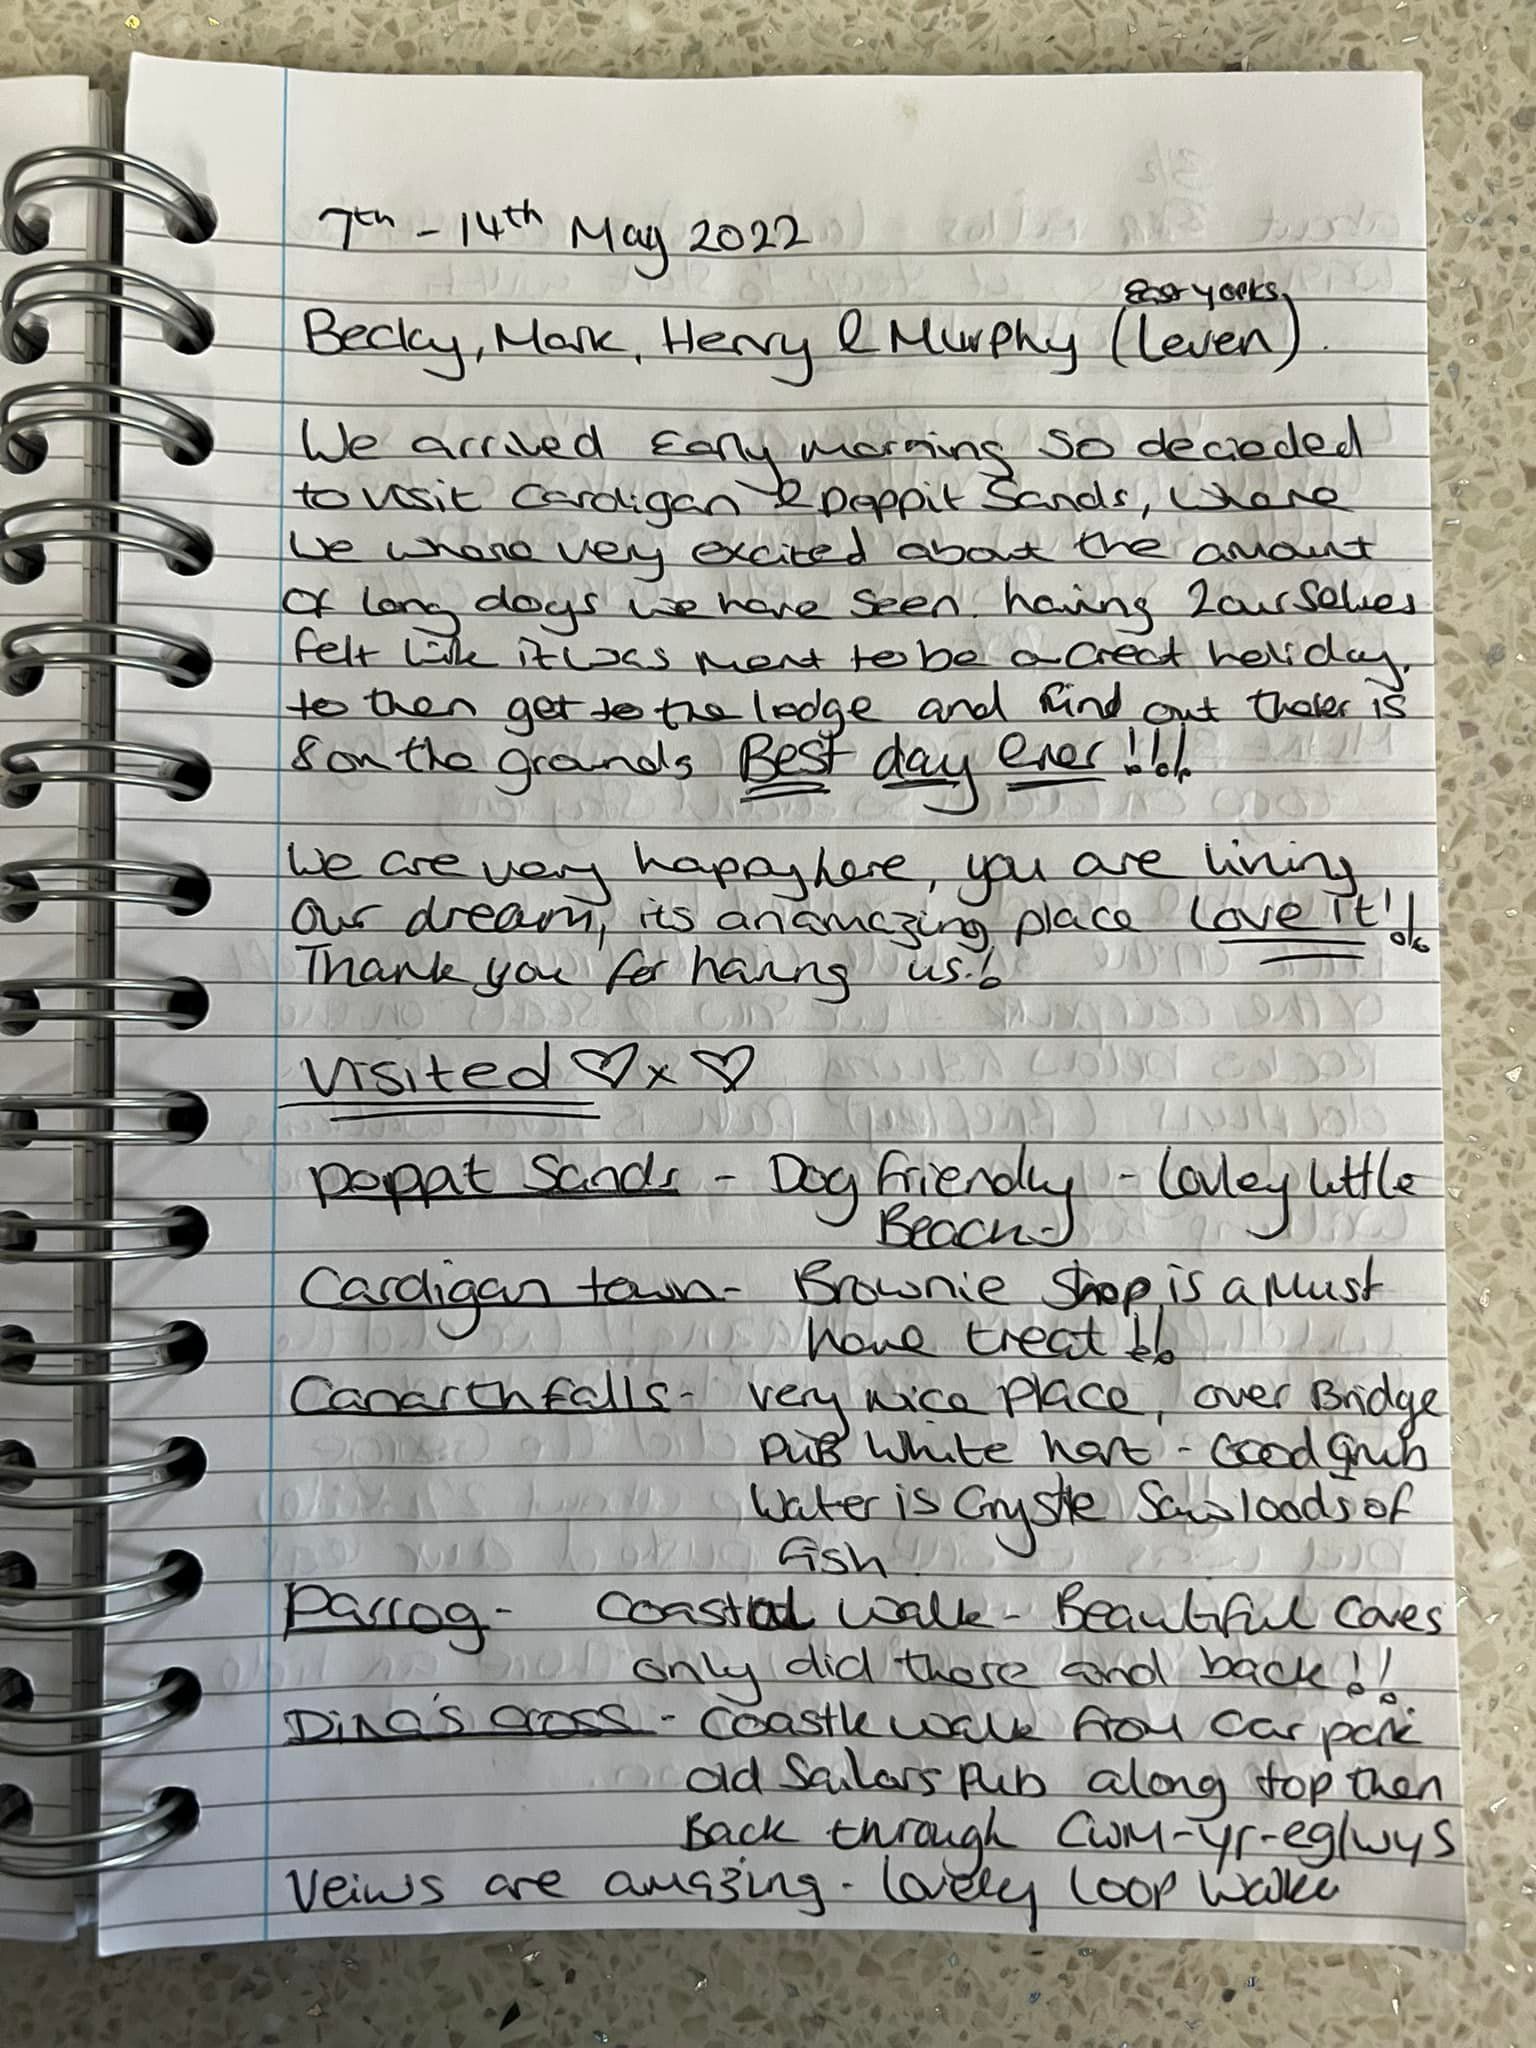 7th - 14th May 2022
East Yorks
Becky, Mark, Henry & Murphy (Leven).
We arrived Early morning so decieded
to visit Cardigan & Poppit Sands, where
we where very excited about the amount
of long dogs we have seen. having 2 ourselves
felt like it was ment to be a Great holiday,
to then get to the lodge and find out theier is
8 on the grounds Best day ever!!!
We are very happy here, you are living
our dream, its an amazing place Love it!!
Thank you for having us!
Visited ♡ x ♡
Poppit Sands - Dog friendly - Lovley little
Beach -
Cardigan town - Brownie shop is a must
have treat!!
Canarth falls - very nice place, over Bridge
PUB White hart - Good grub
Water is Crystle Saw loads of
fish.
Parrog - Coastal walk - Beautiful Caves
only did there and back!!
Dina's cross - Coastle walk from car park
old Sailors Pub along top then
Back through Cwm-yr-eglwys
Veiws are amazing - lovely loop walk